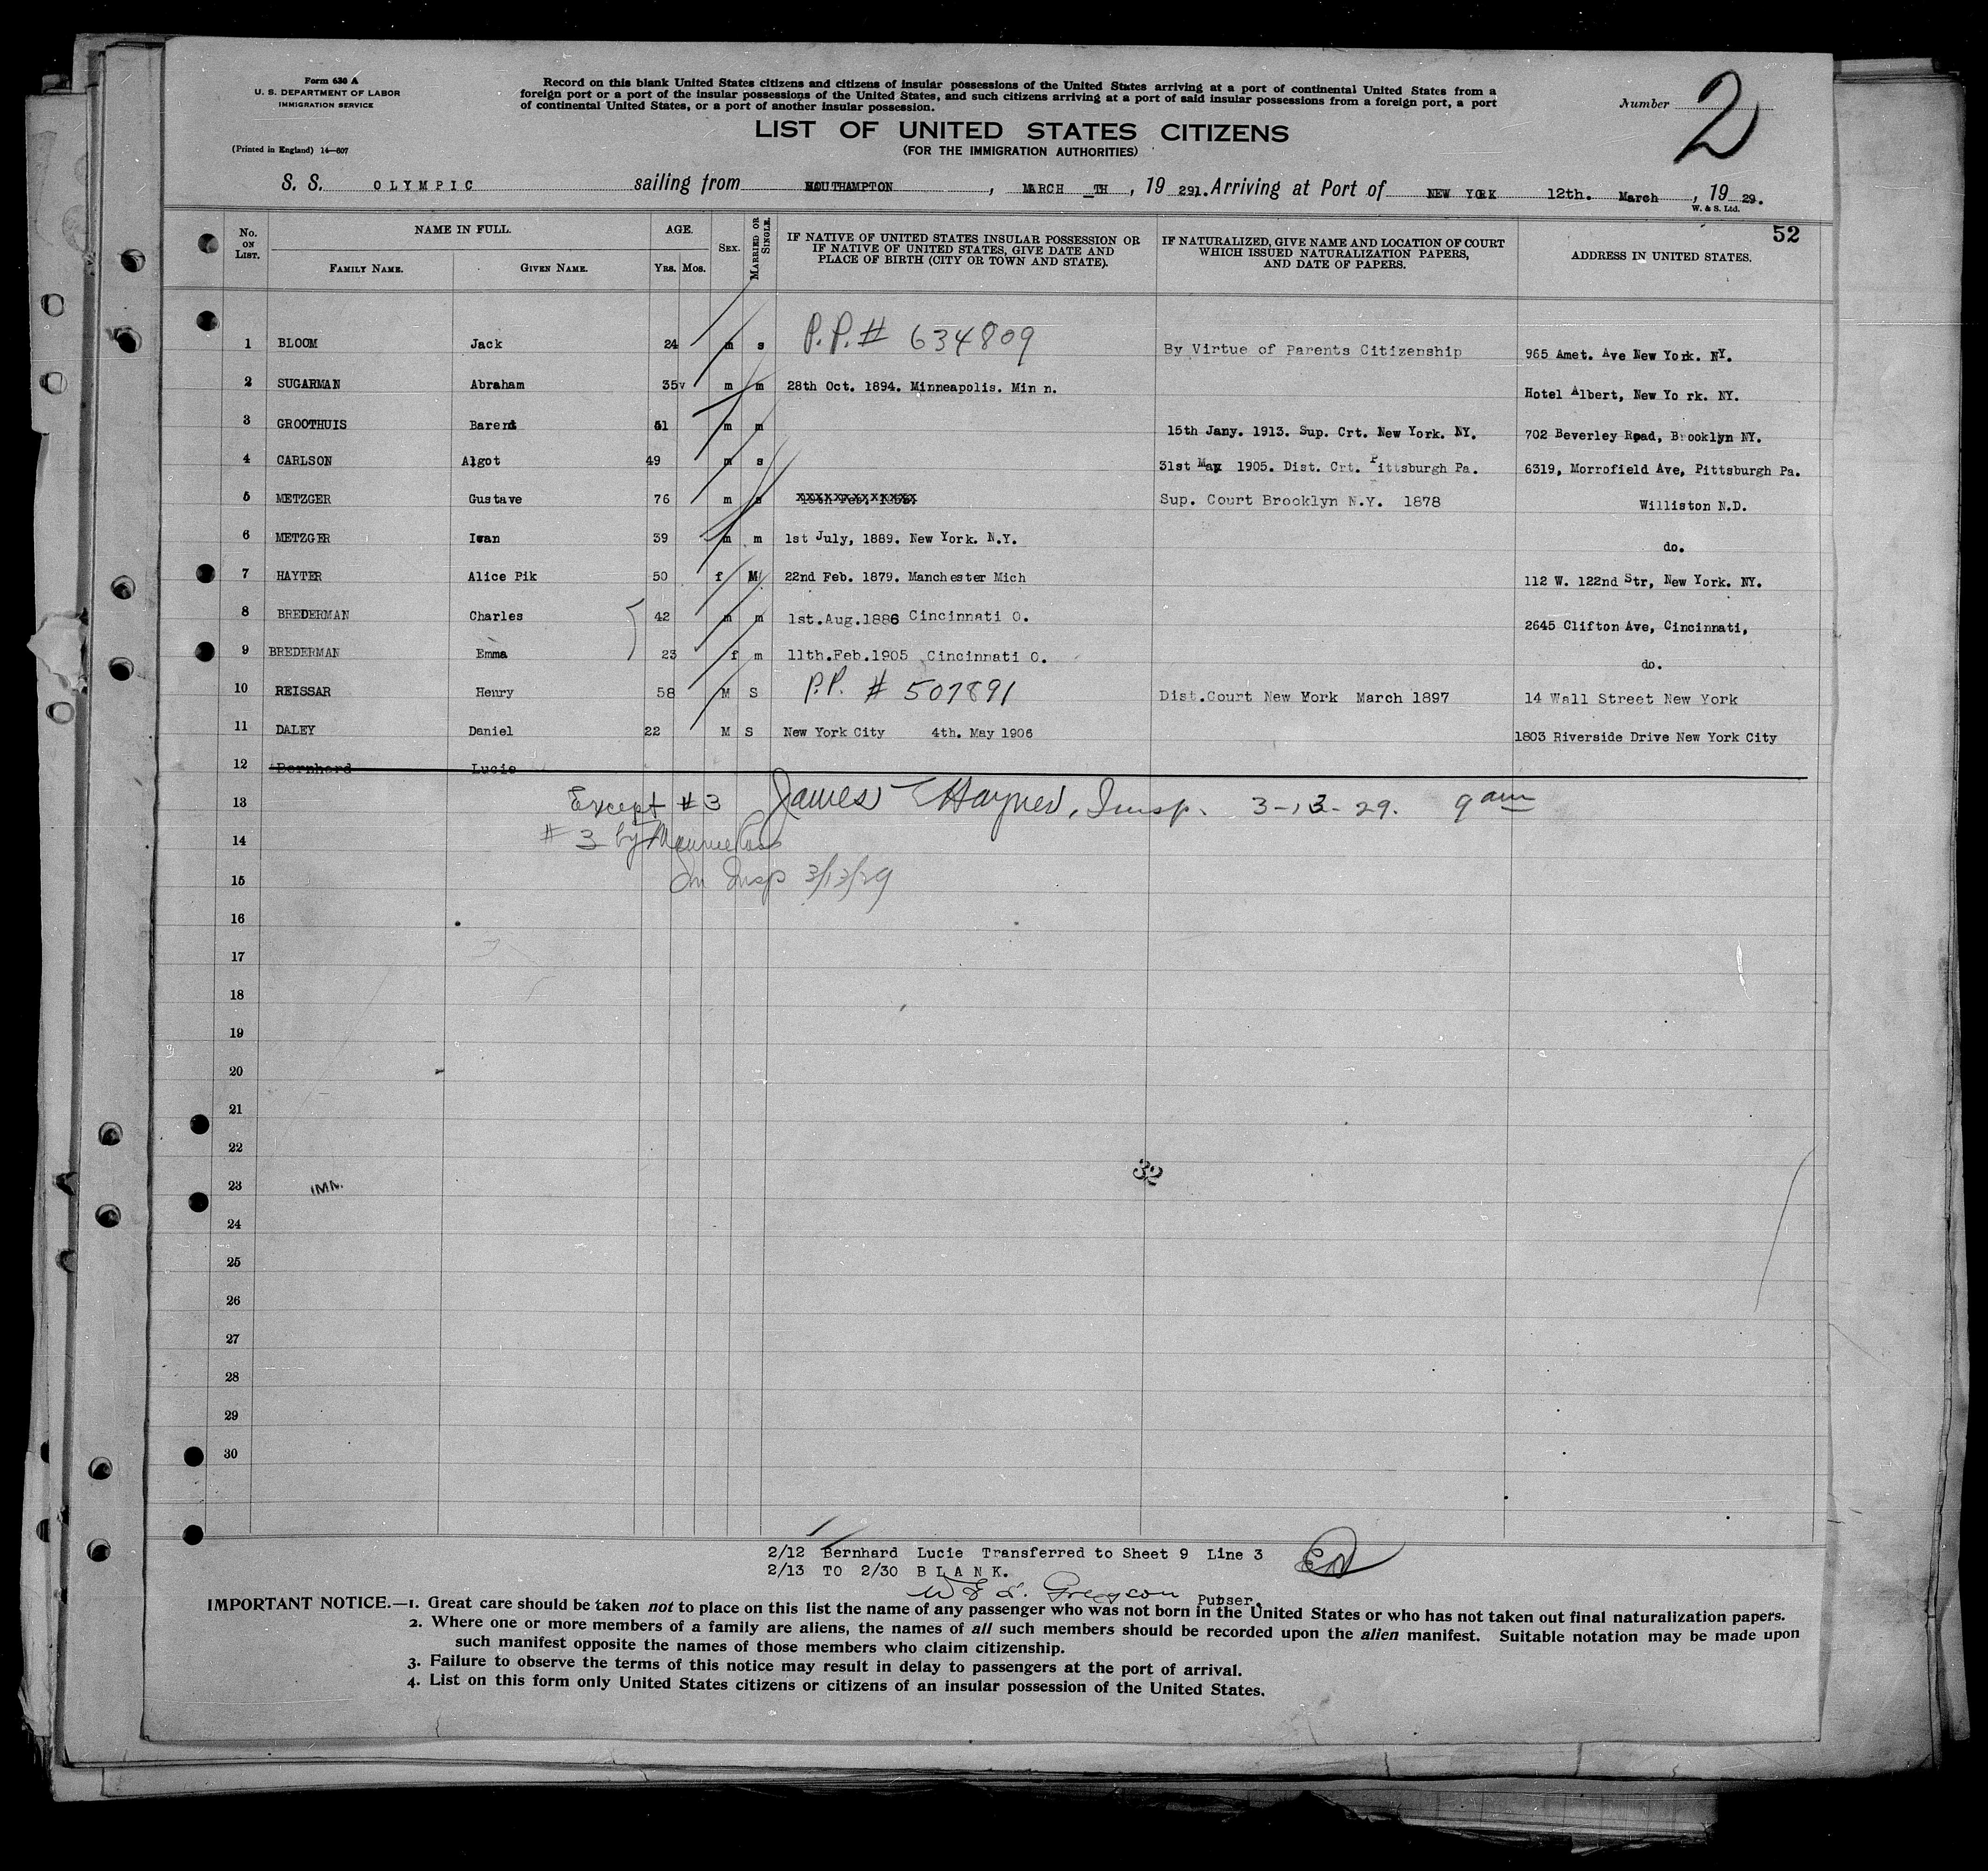 Form 630 A
U. S. DEPARTMENT OF LABOR
IMMIGRATION SERVICE
(Printed in England) 14—607
Record on this blank United States citizens and citizens of insular possessions of the United States arriving at a port of continental United States from a
foreign port or a port of the insular possessions of the United States, and such citizens arriving at a port of said insular possessions from a foreign port, a port
of continental United States, or a port of another insular possession.
Number 2
LIST OF UNITED STATES CITIZENS
(FOR THE IMMIGRATION AUTHORITIES)
S. S. OLYMPIC sailing from SOUTHAMPTON, MARCH TH, 19 291. Arriving at Port of NEW YORK 12th. March, 19 29.
W. & S. Ltd.
52
No. ON LIST. NAME IN FULL. FAMILY NAME. GIVEN NAME. AGE. YRS. MOS. SEX. MARRIED OR SINGLE. IF NATIVE OF UNITED STATES INSULAR POSSESSION OR IF NATIVE OF UNITED STATES, GIVE DATE AND PLACE OF BIRTH (CITY OR TOWN AND STATE). IF NATURALIZED, GIVE NAME AND LOCATION OF COURT WHICH ISSUED NATURALIZATION PAPERS, AND DATE OF PAPERS. ADDRESS IN UNITED STATES.
1 BLOOM Jack 24 m s P.P. # 634809 By Virtue of Parents Citizenship 965 Amst. Ave New York. NY.
2 SUGARMAN Abraham 35v m m 28th Oct. 1894. Minneapolis. Min n. Hotel Albert, New Yo rk. NY.
3 GROOTHUIS Barend 51 m m 15th Jany. 1913. Sup. Crt. New York. NY. 702 Beverley Road, Brooklyn NY.
4 CARLSON Algot 49 m s 31st May 1905. Dist. Crt. Pittsburgh Pa. 6319, Morrofield Ave, Pittsburgh Pa.
5 METZGER Gustave 76 m s Sup. Court Brooklyn N.Y. 1878 Williston N.D.
6 METZGER Iwan 39 m m 1st July, 1889. New York. N.Y. do.
7 HAYTER Alice Pik 50 f M 22nd Feb. 1879. Manchester Mich 112 W. 122nd Str, New York. NY.
8 BREDERMAN Charles 42 m m 1st.Aug.1886 Cincinnati O. 2645 Clifton Ave, Cincinnati,
9 BREDERMAN Emma 23 f m 11th.Feb.1905 Cincinnati O. do.
10 REISSAR Henry 58 M S P.P. # 507891 Dist.Court New Mork March 1897 14 Wall Street New York
11 DALEY Daniel 22 M S New York City 4th. May 1906 1803 Riverside Drive New York City
12 Bernhard Lucie
13 Except #3 James Haynes, Insp. 3-13-29. 9 am
14 # 3 by
15 Insp 3/13/29
16
17
18
19
20
21
22
32
23 IMM.
24
25
26
27
28
29
30
2/12 Bernhard Lucie Transferred to Sheet 9 Line 3
2/13 TO 2/30 BLANK.
Greyson Purser.
IMPORTANT NOTICE.—1. Great care should be taken not to place on this list the name of any passenger who was not born in the United States or who has not taken out final naturalization papers.
2. Where one or more members of a family are aliens, the names of all such members should be recorded upon the alien manifest. Suitable notation may be made upon
such manifest opposite the names of those members who claim citizenship.
3. Failure to observe the terms of this notice may result in delay to passengers at the port of arrival.
4. List on this form only United States citizens or citizens of an insular possession of the United States.